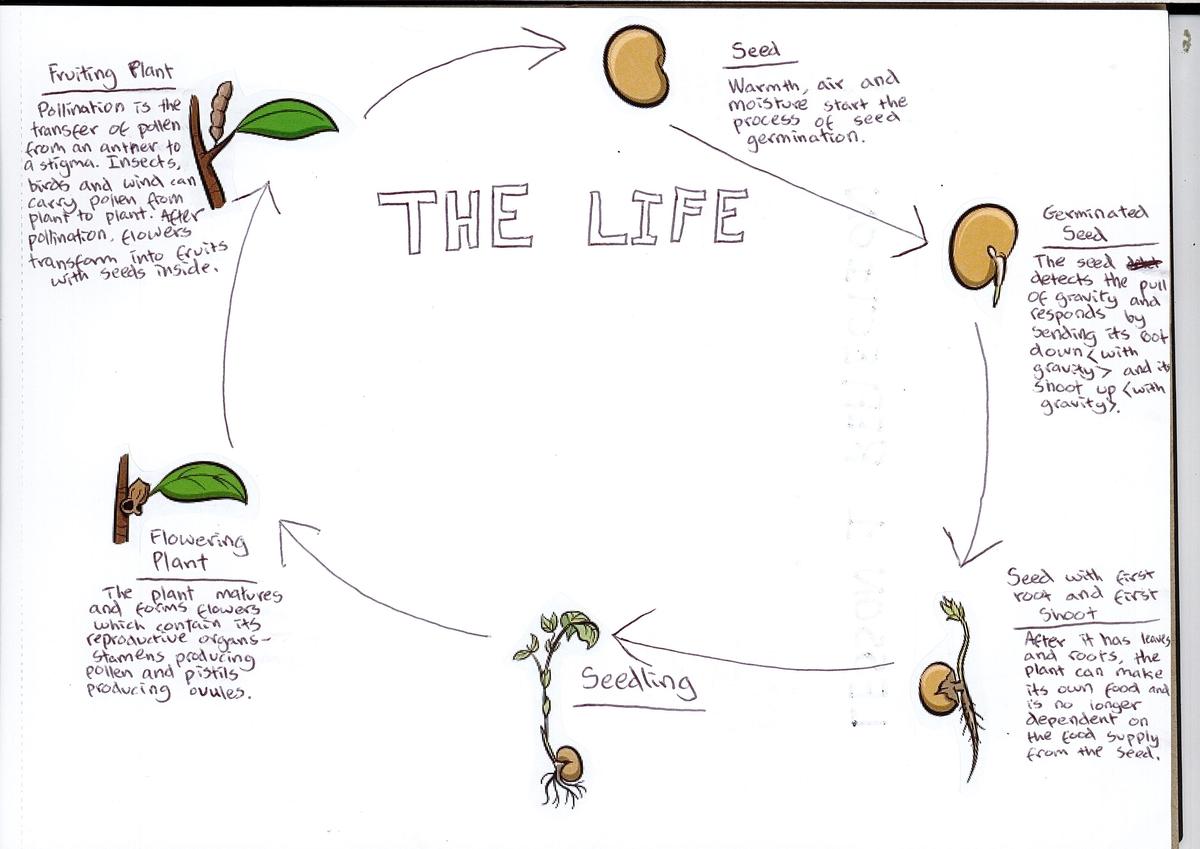 THE LIFE
Seed
Warmth, air and
moisture start the
process of seed
germination.
Germinated
Seed
The seed
detects the pull
of gravity and
responds by
sending its oot
down <with
gravity> and it
shoot up <with
gravity>.
Seed with first
root and first
shoot
After it has leaves
and roots, the
plant can make
its own food and
is no longer
dependent on
the food supply
from the seed.
Seedling
Flowering
Plant
The plant matures
and forms flowers
which contain its
reproductive organs-
stamens producing
pollen and pistils
producing ovules.
Fruiting Plant
Pollination is the
transfer of pollen
from an anther to
a stigma. Insects,
birds and wind can
carry pollen from
plant to plant. After
pollination, flowers
transform into fruits
with seeds inside.